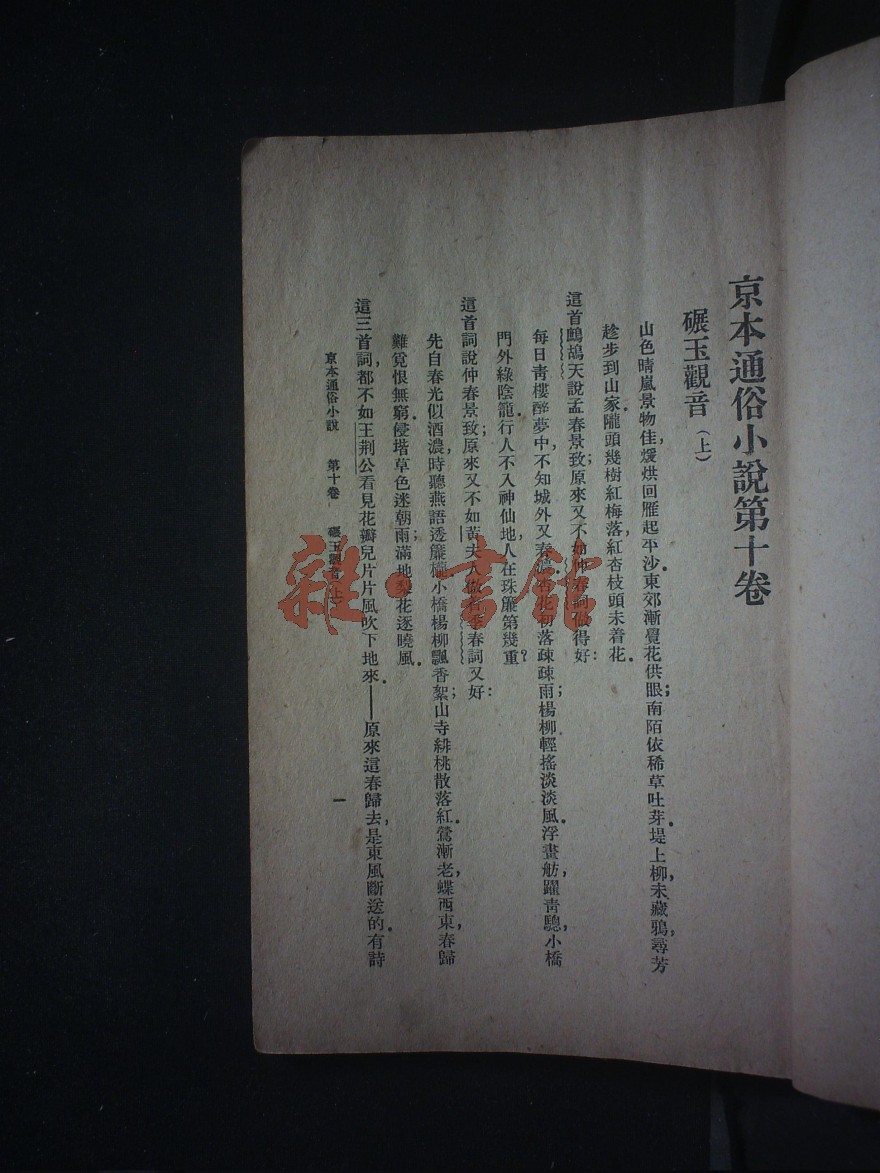 京本通俗小說第十卷
碾玉觀音(上)
山色晴嵐景物佳，煖烘回雁起平沙。東郊漸覺花供眼；南陌依稀草吐芽。堤上柳，未藏鴉，尋芳
趁步到山家。隴頭幾樹紅梅落，紅杏枝頭未着花。
這首鷓鴣天說孟春景致；原來又不如仲春詞做得好：
每日青樓醉夢中，不知城外又春濃。杏花初落疎疎雨；楊柳輕搖淡淡風。浮畫舫，躍青驄，小橋
門外綠陰籠。行人不入神仙地，人在珠簾第幾重？
這首詞說仲春景致；原來又不如黃夫人做著季春詞又好：
先自春光似酒濃，時聽燕語透簾櫳。小橋楊柳飄香絮；山寺緋桃散落紅。鶯漸老，蝶西東，春歸
難覓恨無窮。侵堦草色迷朝雨；滿地梨花逐曉風。
這三首詞，都不如王荆公看見花瓣兒片片風吹下地來。——原來這春歸去，是東風斷送的。有詩
京本通俗小說　第十卷　碾玉觀音(上)
一
雜·書館